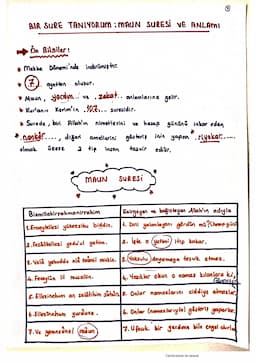 BIR SURE TANIYORUM : MAUN SURESİ VE ANLAMI
Ön Bilgiler:
Mekke Dönemi'nde indirilmiştir.
7 ayetten oluşur.
Maun, yardım ve zekat anlamlarına gelir.
Kuranı Kerim'in 107. suresidir.
Surede, bol Allah'ın nimetlerini ve hesap gününü inkar eden
nankör, diğeri amellerini gösteriş için yapan riyakar
olmak üzere 2 tip insan tasvir edilir.
MAUN SURESİ
Bismillahirrahmanirrahim
Esirgeyen ve bağışlayan Allah'ın adıyla
1. Eraeytellezi yükezzibü biddin.
1. Dini yalanlayanı gördün mü?
2. Fezâlikellezi yedu'ul yetim.
2. İşte o yetimi itip kakar.
3. Velâ yehuddu alâ taâmil miskin.
3. Yoksulu doyurmaya teşvik etmez.
4. Feveylün lil musallin.
4. Yazıklar olsun o namaz kılanlara ki,
5. Ellezinehum an salâtihim sâhûn.
5. Onlar namazlarını ciddiye almazlar.
6. Ellezinehum yurâune.
6. Onlar (namazlarıyla) gösteriş yaparlar.
7. Ve yemneûnel mâun
7. Ufacık bir yardıma bile engel olurlar.